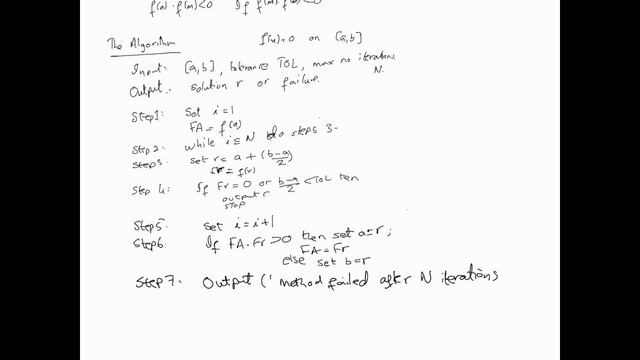 f(a) · f(m) < 0 If f(m) · f(b) < 0
The Algorithm f(x)=0 on [a,b]
Input: [a,b], tolerance TOL, max no iterations N.
Output: solution r or failure.
Step 1: Set i=1
FA = f(a)
Step 2: while i ≤ N do steps 3-
Step 3: set r = a + (b-a)/2
Fr = f(r)
Step 4: If Fr=0 or (b-a)/2 < TOL then
output r
STOP
Step 5: set i=i+1
Step 6: If FA·Fr>0 then set a=r;
FA=Fr
else set b=r
Step 7: Output ('method failed after N iterations